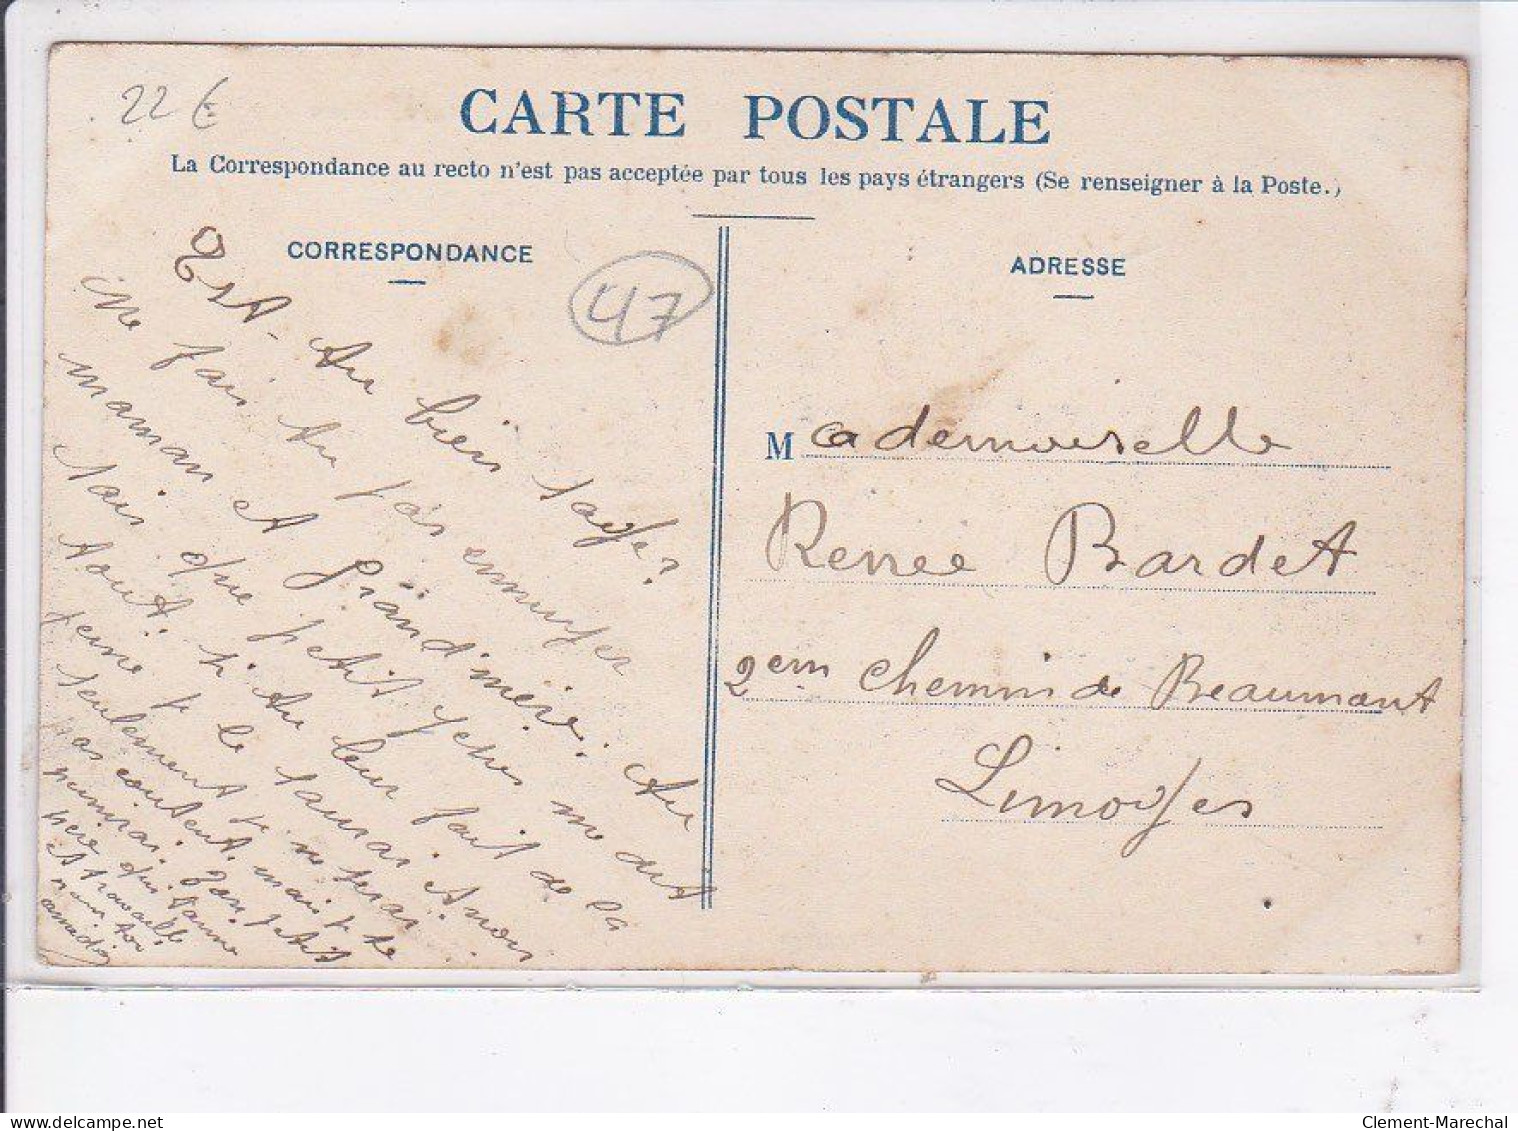 22 €
CARTE POSTALE
La Correspondance au recto n'est pas acceptée par tous les pays étrangers (Se renseigner à la Poste.)
CORRESPONDANCE
47
Est-tu bien sage?
Ne fais tu pas ennuyer
maman et Grand'mère. Tu
sais que petit yeux me dit
tout. si tu leur fait de la
peine je le saurai et non
seulement je ne serai
pas content. mais je te
punirai. Ton petit
père qui t'aime
et travaille
pour toi
ADRESSE
Mademoiselle
Renée Bardet
2em Chemin de Beaumont
Limoges
Clement-Marechal